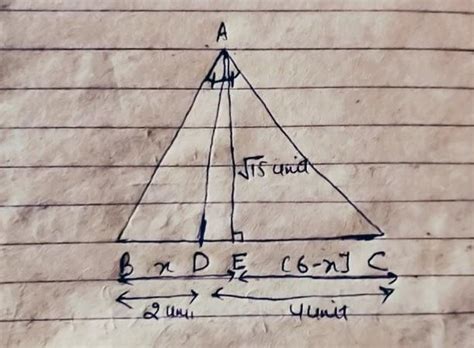 A
√15 unit
B x D E [6-x] C
2 unit 4 unit